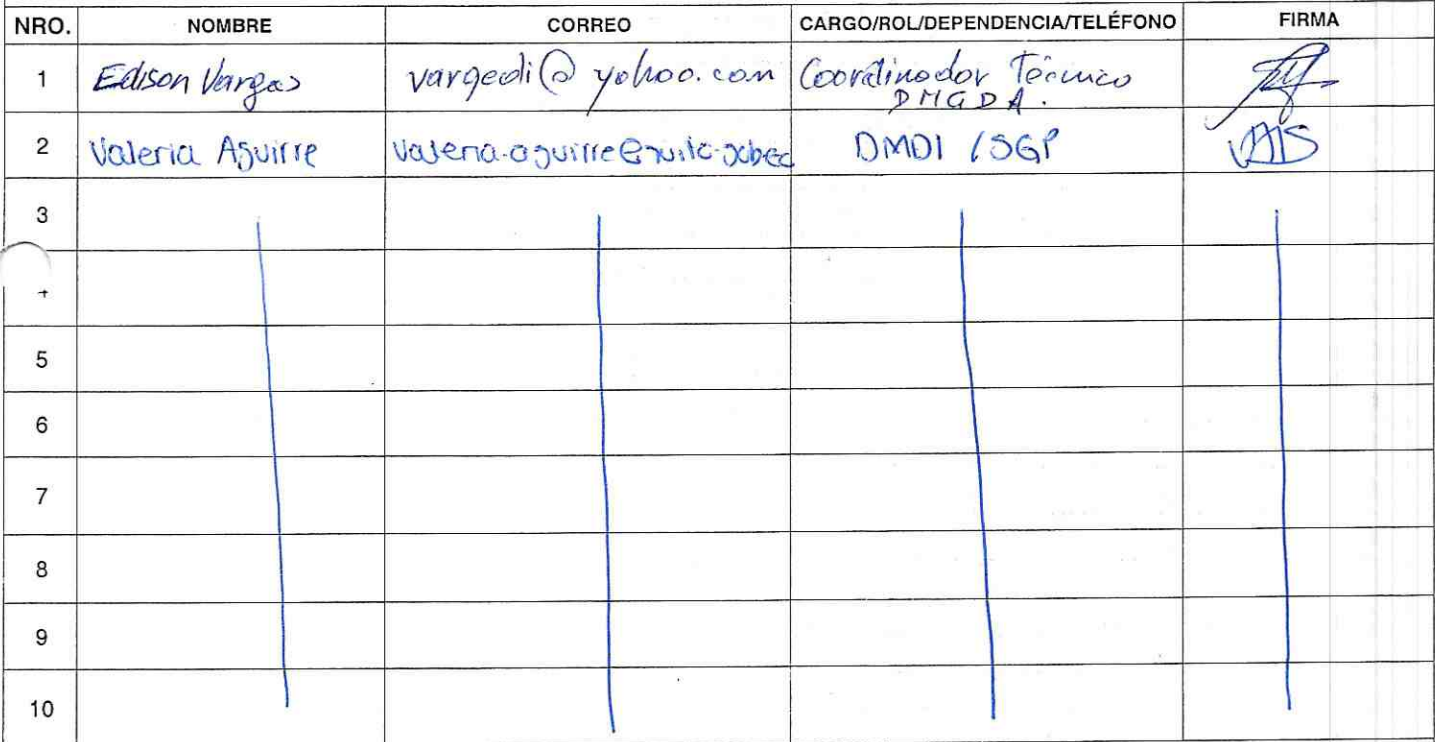 NRO. NOMBRE CORREO CARGO/ROL/DEPENDENCIA/TELÉFONO FIRMA
1 Edison Vargas vargedi@yahoo.com Coordinador Técnico
DMGDA.
2 Valeria Aguirre valeria.aguirre@quito.gob.ec DMDI / SGP
3
4
5
6
7
8
9
10